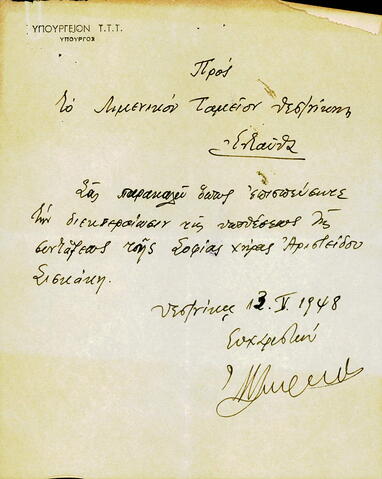 ΥΠΟΥΡΓΕΙΟΝ Τ.Τ.Τ.
ΥΠΟΥΡΓΟΣ
Πρός
Τὸ Λιμενικόν Ταμείον Θεσ/νίκης
Ἐνταῦθα
Σᾶς παρακαλῶ ὅπως ἐπισπεύσητε
τὴν διεκπεραίωσιν τῆς ὑποθέσεως τῆς
συντάξεως τῆς Σοφίας χήρας Ἀριστείδου
Σισκάκη.
Θεσ/νίκη 13 V 1948
Εὐχαριστῶν